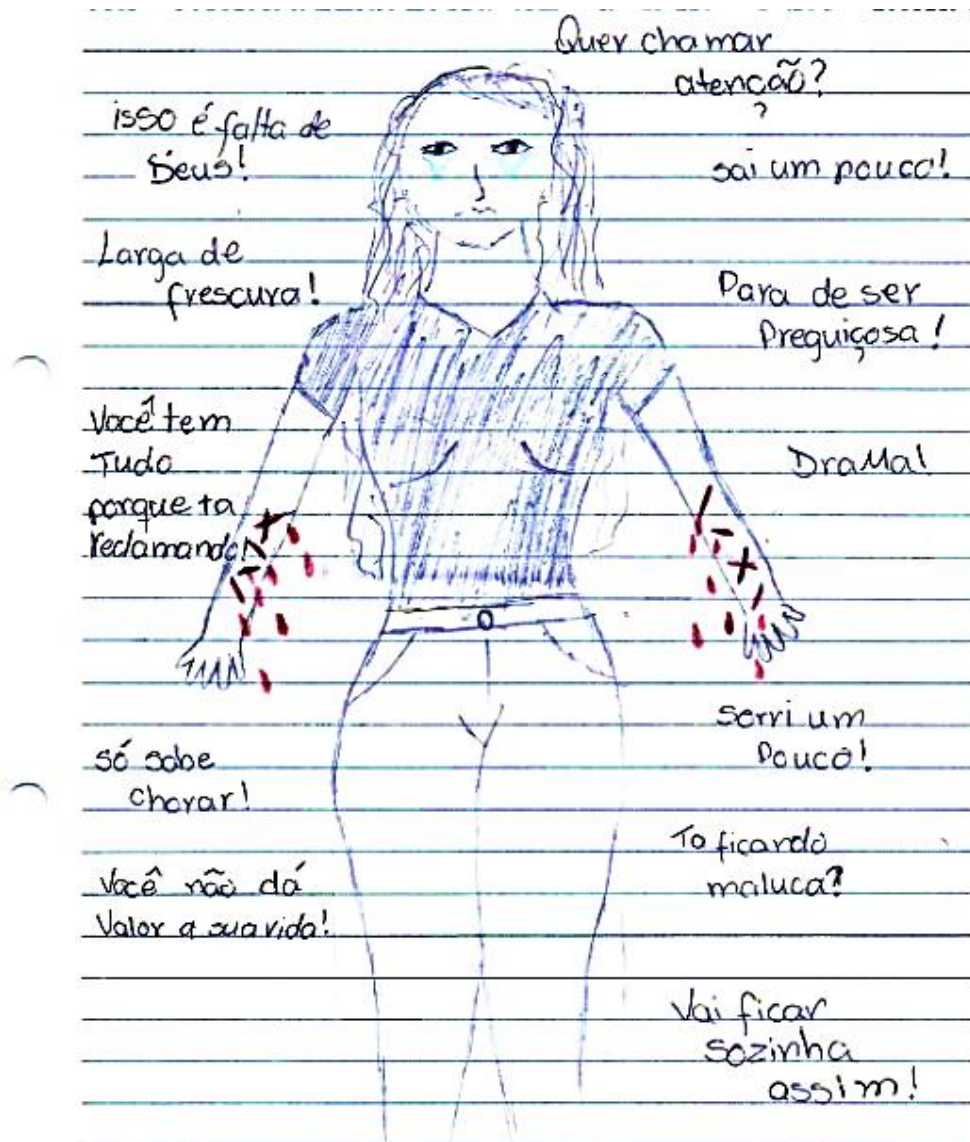 Quer chamar
atenção?
?
isso é falta de
Deus!
sai um pouco!
Larga de
frescura!
Para de ser
Preguiçosa!
Você tem
Tudo
porque ta
reclamando?
DraMa!
Sorri um
Pouco!
só sabe
Chorar!
To ficando
maluca?
Você não dá
Valor a sua vida!
Vai ficar
sozinha
assim!